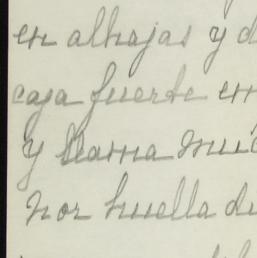 en alhajas y d
caja fuerte en
y llama mu
por huella de